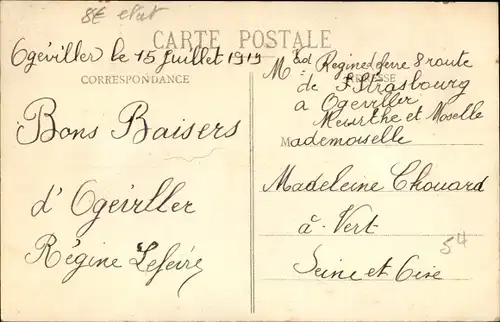 8€ etat
CARTE POSTALE
Ogéviller le 15 Juillet 1919
CORRESPONDANCE
Bons Baisers
d'Ogéviller
Régine Lefèvre
ADRESSE
Régine 8 route
de Strasbourg
a Ogeviller
Meurthe et Moselle
Mademoiselle
Madeleine Chouard
à Vert
Seine et Oise
54